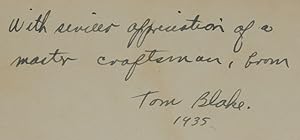 With sincere appreciation of a
master craftsman, from
Tom Blake.
1935